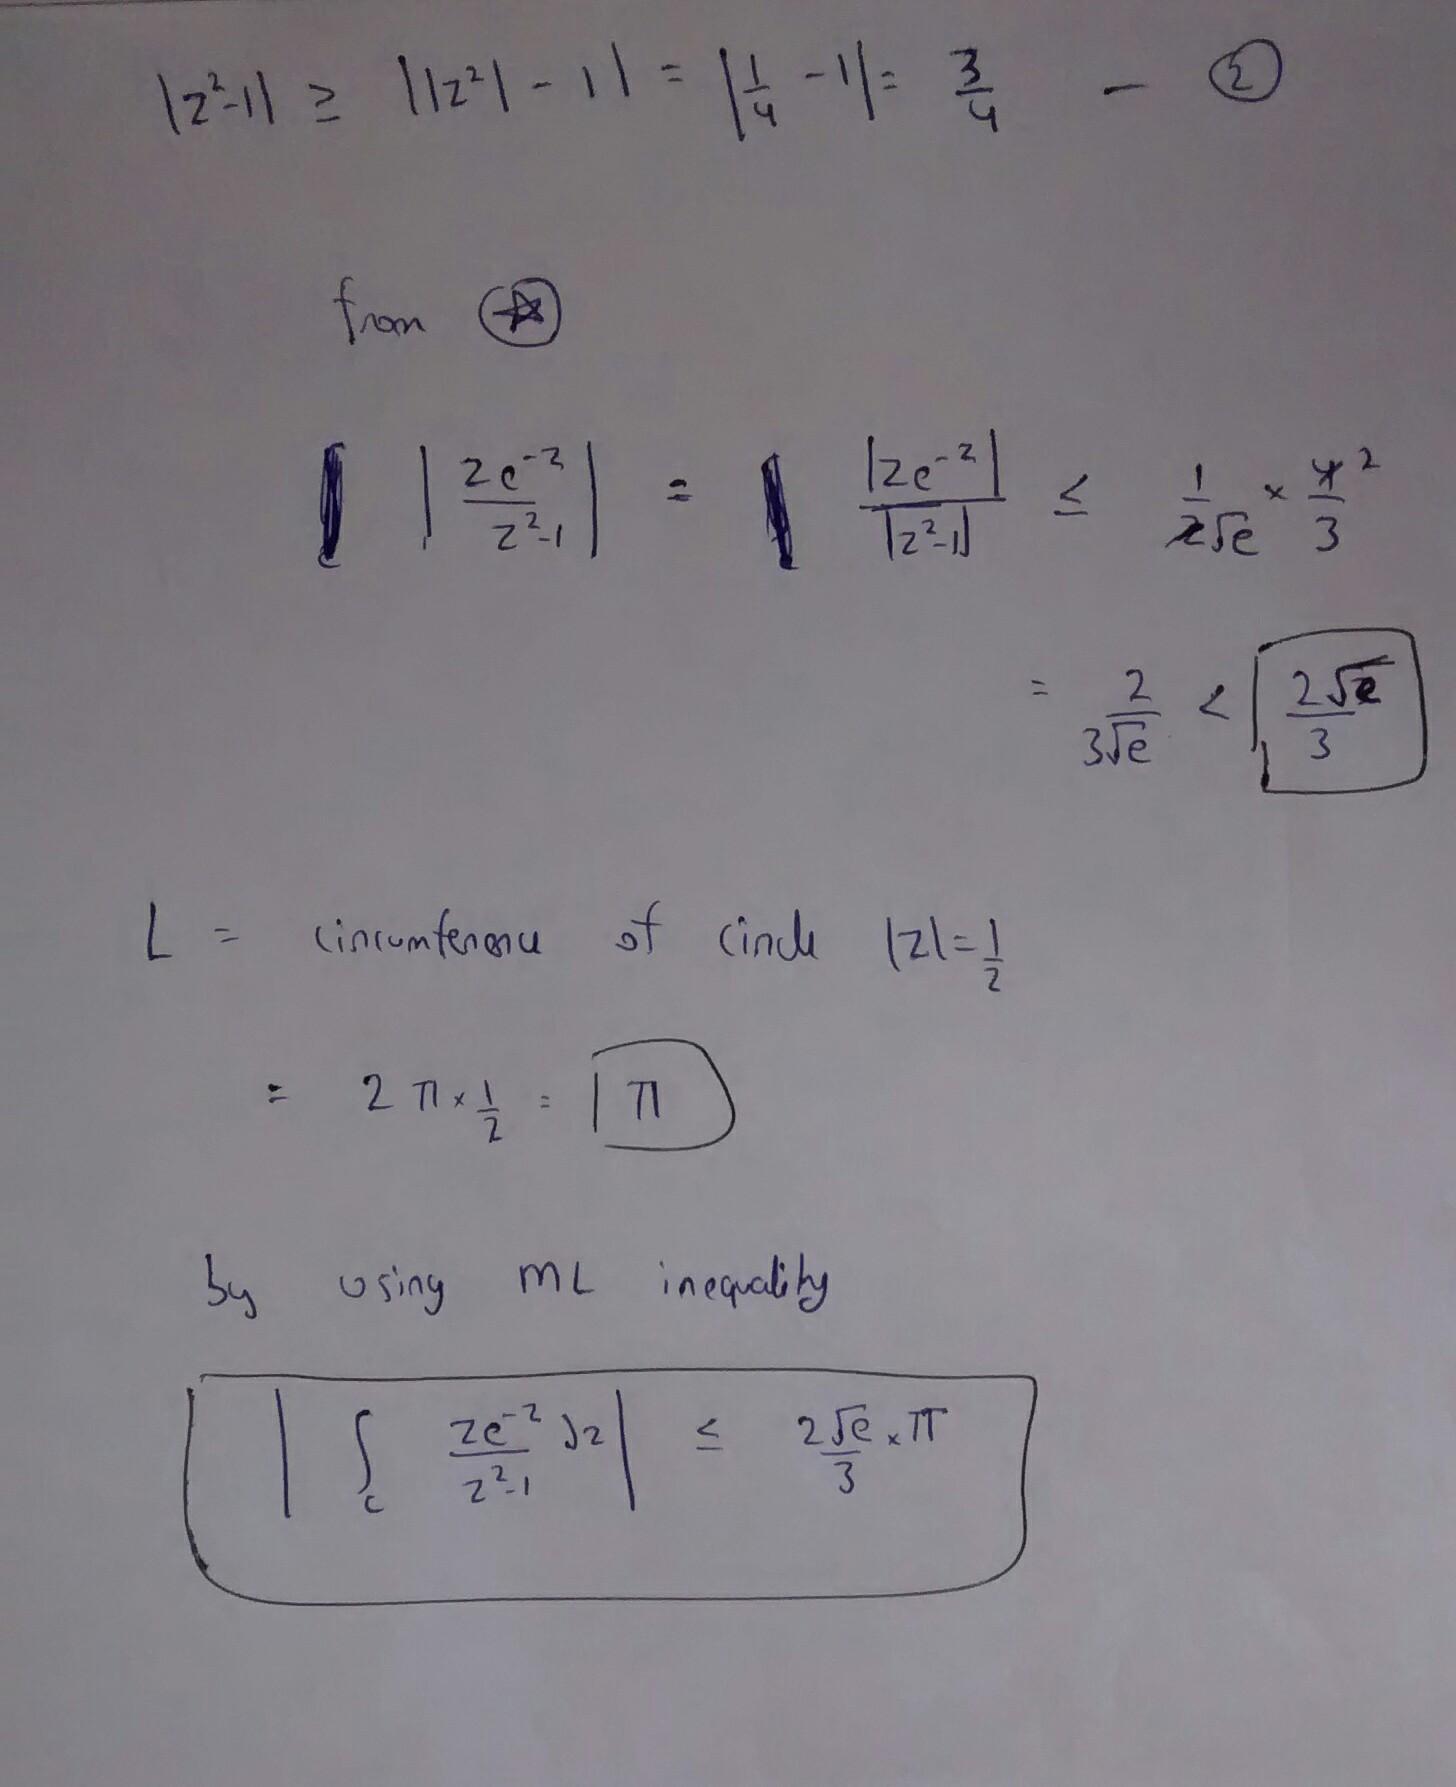 |z²-1| ≥ ||z²| - 1| = |1/4 - 1| = 3/4 - ②
from ☆
|ze^-z / z²-1| = |ze^-z| / |z²-1| ≤ 1/2√e × 4/3 2
= 2/3√e < 2√e/3
L = circumference of circle |z| = 1/2
= 2π × 1/2 = π
by using ML inequality
|∫_c ze^-z / z²-1 dz| ≤ 2√e/3 × π